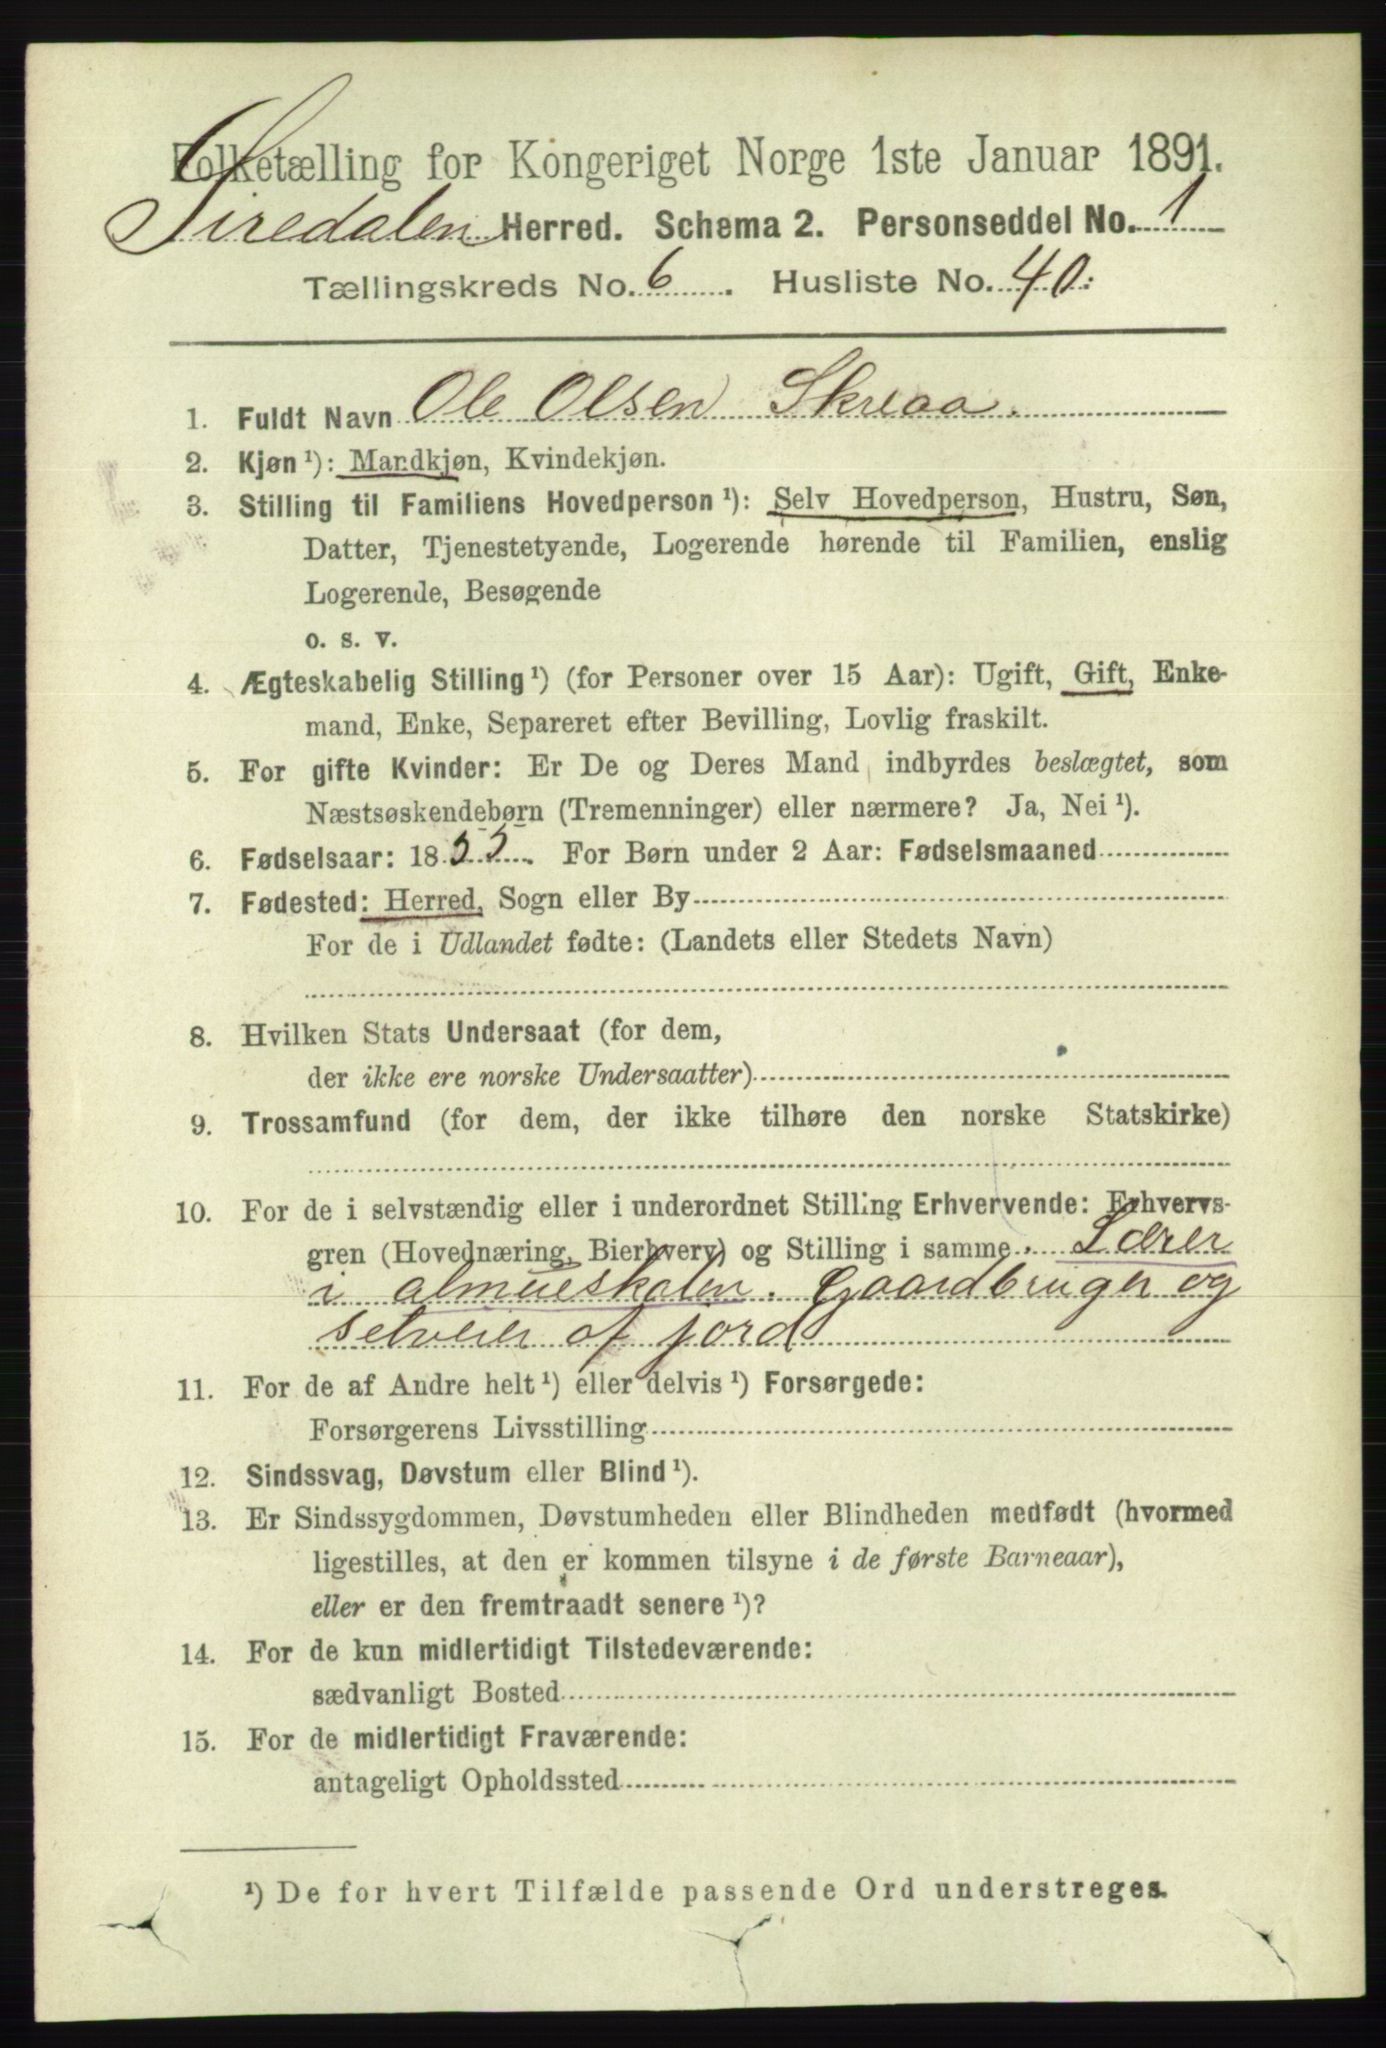 Folketælling for Kongeriget Norge 1ste Januar 1891.
Siredalen Herred. Schema 2. Personseddel No. 1
Tællingskreds No. 6. Husliste No. 40.
1. Fuldt Navn Ole Olsen Skreaa.
2. Kjøn ¹): Mandkjøn, Kvindekjøn.
3. Stilling til Familiens Hovedperson ¹): Selv Hovedperson, Hustru, Søn,
Datter, Tjenestetyende, Logerende hørende til Familien, enslig
Logerende, Besøgende
o. s. v.
4. Ægteskabelig Stilling ¹) (for Personer over 15 Aar): Ugift, Gift, Enke-
mand, Enke, Separeret efter Bevilling, Lovlig fraskilt.
5. For gifte Kvinder: Er De og Deres Mand indbyrdes beslægtet, som
Næstsøskendebørn (Tremenninger) eller nærmere? Ja, Nei ¹).
6. Fødselsaar: 1855. For Børn under 2 Aar: Fødselsmaaned
7. Fødested: Herred, Sogn eller By
For de i Udlandet fødte: (Landets eller Stedets Navn)
8. Hvilken Stats Undersaat (for dem,
der ikke ere norske Undersaatter)
9. Trossamfund (for dem, der ikke tilhøre den norske Statskirke)
10. For de i selvstændig eller i underordnet Stilling Erhvervende: Erhvervs-
gren (Hovednæring, Bierhverv) og Stilling i samme. Lærer
i almueskolen. Gaardbruger og
selveier af jord
11. For de af Andre helt ¹) eller delvis ¹) Forsørgede:
Forsørgerens Livsstilling
12. Sindssvag, Døvstum eller Blind ¹).
13. Er Sindssygdommen, Døvstumheden eller Blindheden medfødt (hvormed
ligestilles, at den er kommen tilsyne i de første Barneaar),
eller er den fremtraadt senere ¹)?
14. For de kun midlertidigt Tilstedeværende:
sædvanligt Bosted
15. For de midlertidigt Fraværende:
antageligt Opholdssted
¹) De for hvert Tilfælde passende Ord understreges.